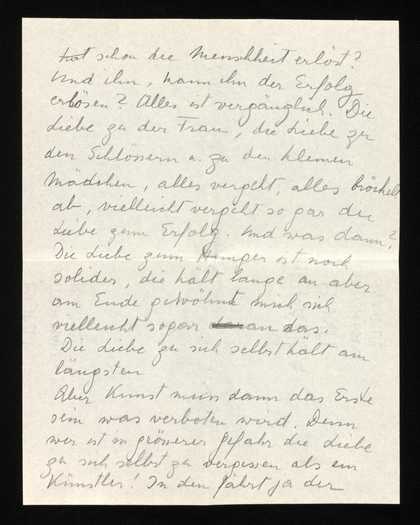 hat schon die Menschheit erlöst?
Und ihn, kann ihn der Erfolg
erlösen? Alles ist vergänglich. Die
Liebe zu der Frau, die Liebe zu
den Schlössern u. zu den kleinen
Mädchen, alles vergeht, alles bröckelt
ab, vielleicht vergeht so gar die
Liebe zum Erfolg. Und was dann?
Die Liebe zum Hunger ist noch
solider, die hält lange an aber
am Ende gewöhnt mich sich
vielleicht sogar an das.
Die Liebe zu sich selbst hält am
längsten
Aber Kunst muss dann das Erste
sein was verboten wird. Denn
wer ist in grösserer Gefahr die Liebe
zu sich selbst zu vergessen als ein
Künstler! In den fährt ja der